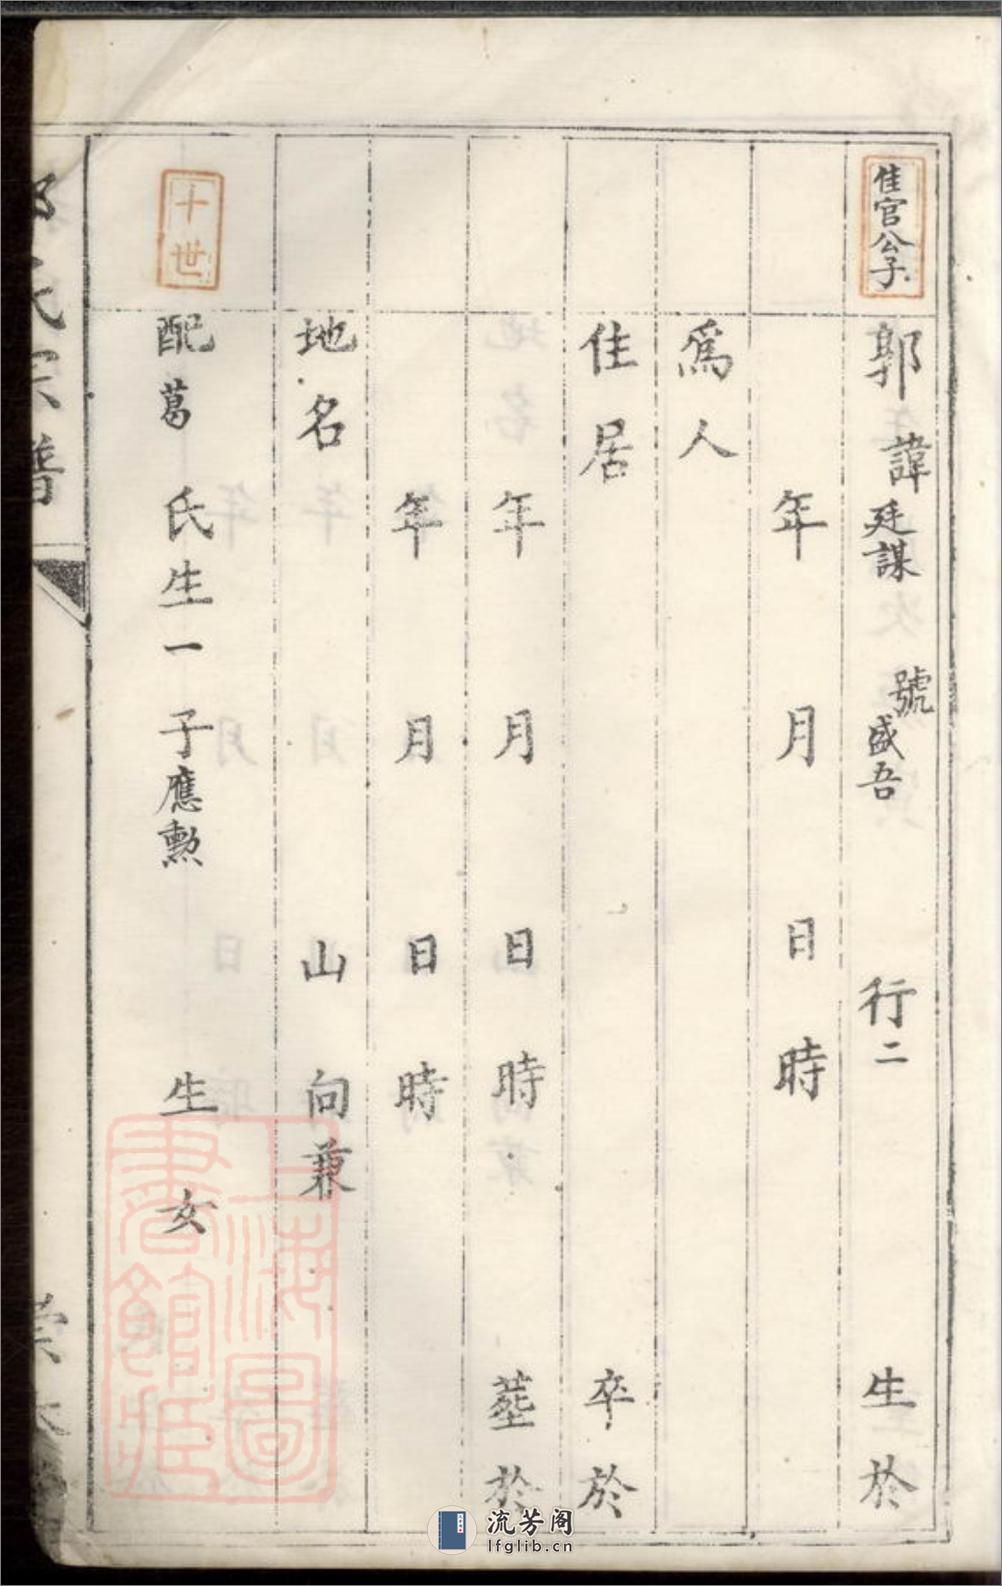 佳官公子
郭 諱廷謀 號盛吾 行二 生於
年 月 日 時
為人
住居 卒於
年 月 日 時 塟於
年 月 日 時
地名 山 向兼
十世
配葛 氏生一子應勲 生 女
氏宗譜
上海圖書館藏
流芳阁
lfglib.cn